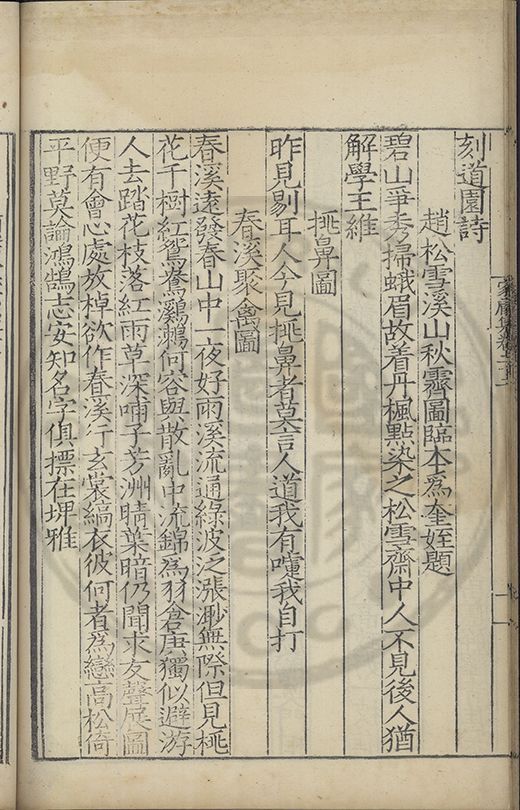 刻道園詩
趙松雪溪山秋霽圖臨本爲奎姪題
碧山爭秀掃蛾眉故着丹楓點染之松雪齋中人不見後人猶
解學王維
挑鼻圖
昨見剔耳人今見挑鼻者莫言人道我有嚏我自打
春溪聚禽圖
春溪遠發春山中一夜好雨溪流通綠波泛漲渺無際但見桃
花千樹紅鴛鴦鸂鶒何容與散亂中流錦爲羽倉庚獨似避游
人去踏花枝落紅雨草深哺子芳洲晴葉暗仍聞求友聲展圖
便有會心處放棹欲作春溪行玄裳縞衣彼何者爲戀高松倚
平野莫論鴻鵠志安知名字俱摽在埤雅